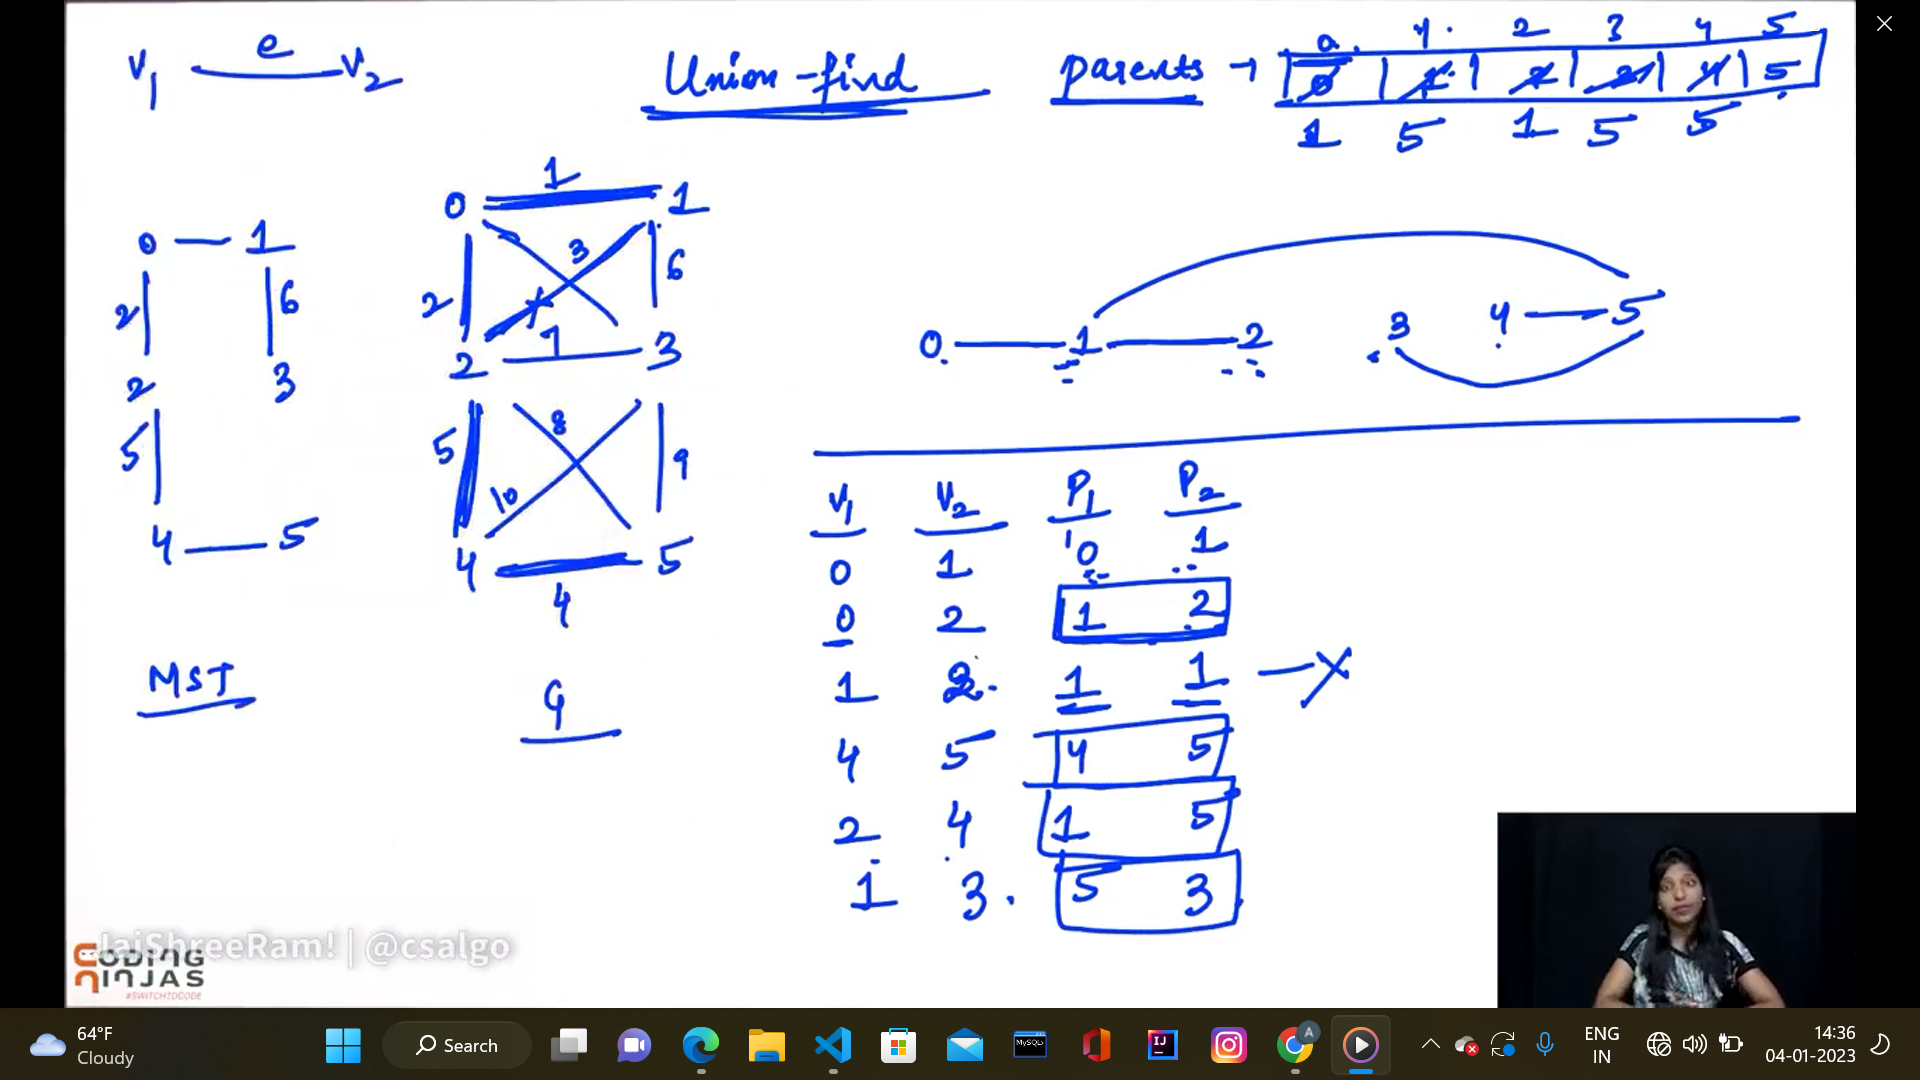 V1 e V2
Union-find
parents → 0 1 2 3 4 5
0 1 2 3 4 5
1 5 1 5 5
0 1
2 6
2 3
5
4 5
MST
1
0 1
2 3 6
7
2 3
5 8 9
10
4 5
4
G
0 1 2 3 4 5
V1 V2 P1 P2
0 1 0 1
0 2 1 2
1 2 1 1 — X
4 5 4 5
2 4 1 5
1 3 5 3
JaiShreeRam! | @csalgo
CODING
NINJAS
#SWITCHTOCODE
64°F
Cloudy
Search
MySQL
IJ
A
ENG
IN
14:36
04-01-2023